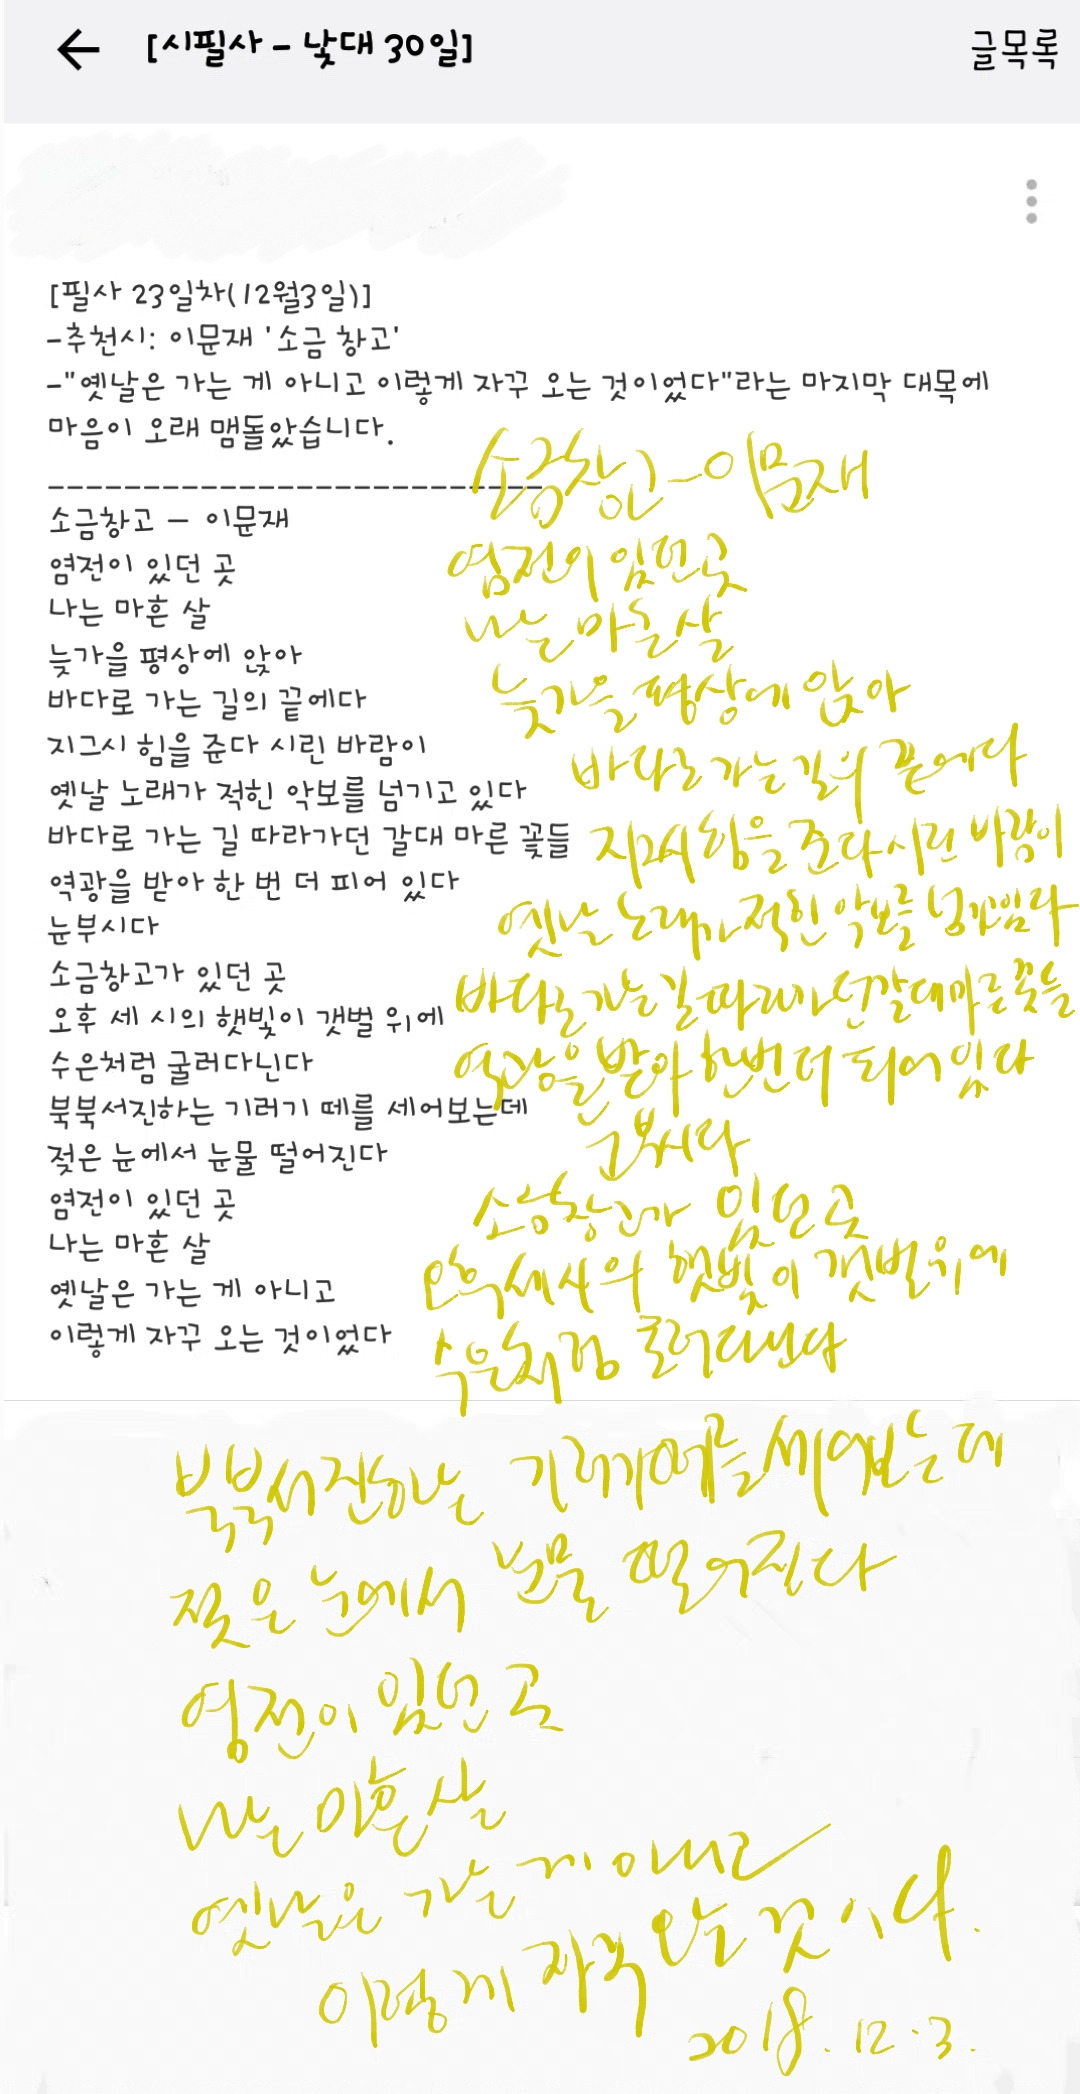 [시필사 - 낮대 30일]
글목록
[필사 23일차(12월3일)]
-추천시: 이문재 '소금 창고'
-"옛날은 가는 게 아니고 이렇게 자꾸 오는 것이었다"라는 마지막 대목에
마음이 오래 맴돌았습니다.
--------------------------
소금창고 - 이문재
염전이 있던 곳
나는 마흔 살
늦가을 평상에 앉아
바다로 가는 길의 끝에다
지그시 힘을 준다 시린 바람이
옛날 노래가 적힌 악보를 넘기고 있다
바다로 가는 길 따라가던 갈대 마른 꽃들
역광을 받아 한 번 더 피어 있다
눈부시다
소금창고가 있던 곳
오후 세 시의 햇빛이 갯벌 위에
수은처럼 굴러다닌다
북북서진하는 기러기 떼를 세어보는데
젖은 눈에서 눈물 떨어진다
염전이 있던 곳
나는 마흔 살
옛날은 가는 게 아니고
이렇게 자꾸 오는 것이었다
소금창고 - 이문재
염전이 있던 곳
나는 마흔 살
늦가을 평상에 앉아
바다로 가는 길의 끝에다
지그시 힘을 준다 시린 바람이
옛날 노래가 적힌 악보를
바다로 가는 길 따라가던 갈대 마른 꽃들
역광을 받아 한번 더 피어 있다
눈부시다
소금창고가 있던 곳
오후 세 시의 햇빛이 갯벌 위에
수은처럼 굴러다닌다
북북서진하는 기러기 떼를 세어보는데
젖은 눈에서 눈물 떨어진다
염전이 있던 곳
나는 마흔 살
옛날은 가는 게 아니고
이렇게 자꾸 오는 것이다.
2018. 12. 3.